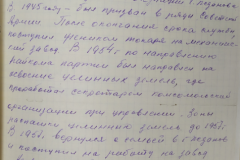 В 1945 году - был призван в ряды Советской
Армии. После окончания срока службы
поступил учеником токаря на механичес-
кий завод. В 1954 г по направлению
райкома партии был направлен на
освоение целинных земель, где
проработал секретарём комсомольской
организации при управлении. Зоны
распашки целинных земель до 1961г.
В 1961г. вернулся
и поступил на работу на завод